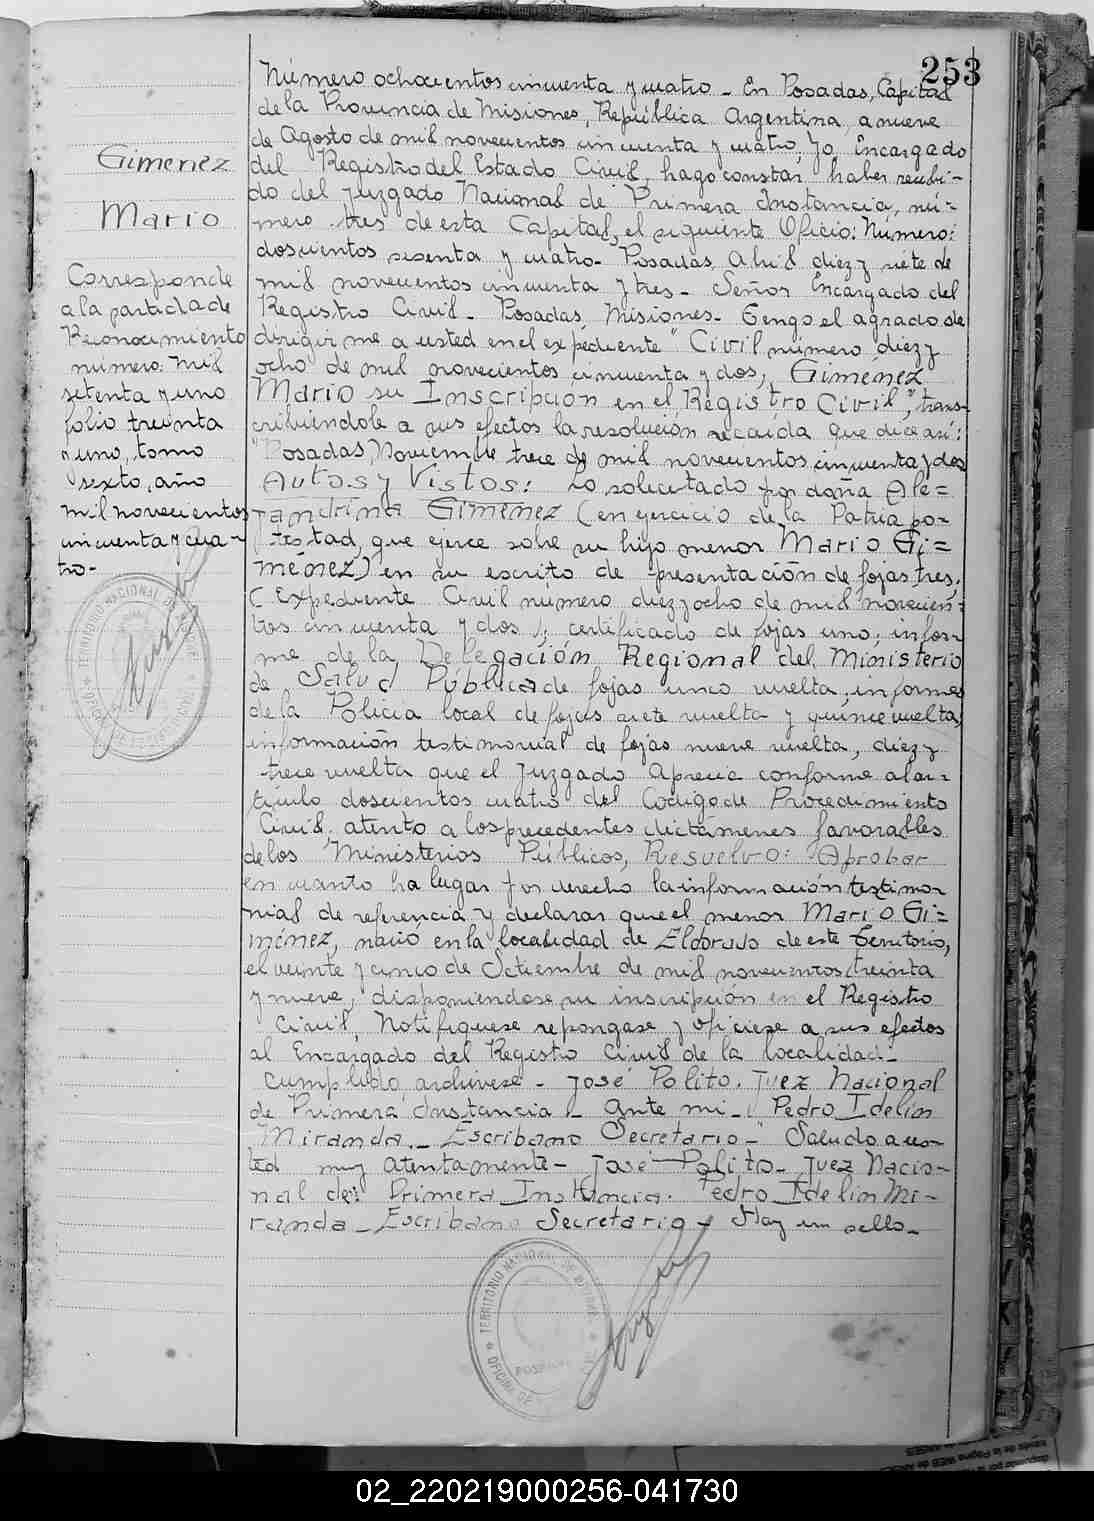 253
Gimenez
Mario
Corresponde
a la partida de
Reconocimiento
numero: mil
setenta y uno
folio treinta
y uno, tomo
sexto, año
mil novecientos
cincuenta y cua-
tro-
Número ochocientos cincuenta y cuatro - En Posadas, Capital
de la Provincia de Misiones, República Argentina, a nueve
de Agosto de mil novecientos cincuenta y cuatro, Yo, Encargado
del Registro del Estado Civil, hago constar haber recibi-
do del Juzgado Nacional de Primera Instancia, nú-
mero tres de esta Capital, el siguiente Oficio: Número:
doscientos sesenta y cuatro- Posadas, Abril diez y siete de
mil novecientos cincuenta y tres- Señor Encargado del
Registro Civil- Posadas, Misiones- Tengo el agrado de
dirigirme a usted en el expediente "Civil número diez y
ocho de mil novecientos cincuenta y dos, Gimenez
Mario su Inscripción en el Registro Civil", trans-
cribiendole a sus efectos la resolución recaida que dice así:
"Posadas, Noviembre trece de mil novecientos cincuenta y dos
Autos y Vistos: Lo solicitado por doña Ale=
jandrina Gimenez (en ejercicio de la Patria po-
testad, que ejerce sobre su hijo menor Mario Gi=
ménez) en su escrito de presentación de fojas tres,
(Expediente Civil número diez y ocho de mil novecien-
tos cincuenta y dos), certificado de fojas uno, infor-
me de la Delegación Regional del Ministerio
de Salud Pública de fojas cinco vuelta, informes
de la Policia local de fojas siete vuelta y quince vuelta,
información testimonial de fojas nueve vuelta, diez y
trece vuelta que el Juzgado aprecia conforme al ar-
tículo doscientos cuatro del Codigo de Procedimiento
Civil, atento a los precedentes dictámenes favorables
de los Ministerios Públicos, Resuelvo: Aprobar
en cuanto ha lugar por derecho la información testimo-
nial de referencia y declarar que el menor Mario Gi=
ménez, nació en la localidad de Eldorado de este Territorio,
el veinte y cinco de Setiembre de mil novecientos treinta
y nueve, disponiendose su inscripción en el Registro
Civil, Notifiquese repongase y oficiese a sus efectos
al Encargado del Registro Civil de la localidad-
Cumplido, archivese - José Polito. Juez Nacional
de Primera Instancia - Ante mi- Pedro Idelin
Miranda.- Escribano Secretario-" Saludo a us-
ted muy atentamente- José Polito- Juez Nacio-
nal de Primera Instancia. Pedro Idelin Mi-
randa - Escribano Secretario y Hay un sello-
TERRITORIO NACIONAL DE
OFICINA DE
TERRITORIO NACIONAL DE
POSADAS
OFICINA DE
02_220219000256-041730